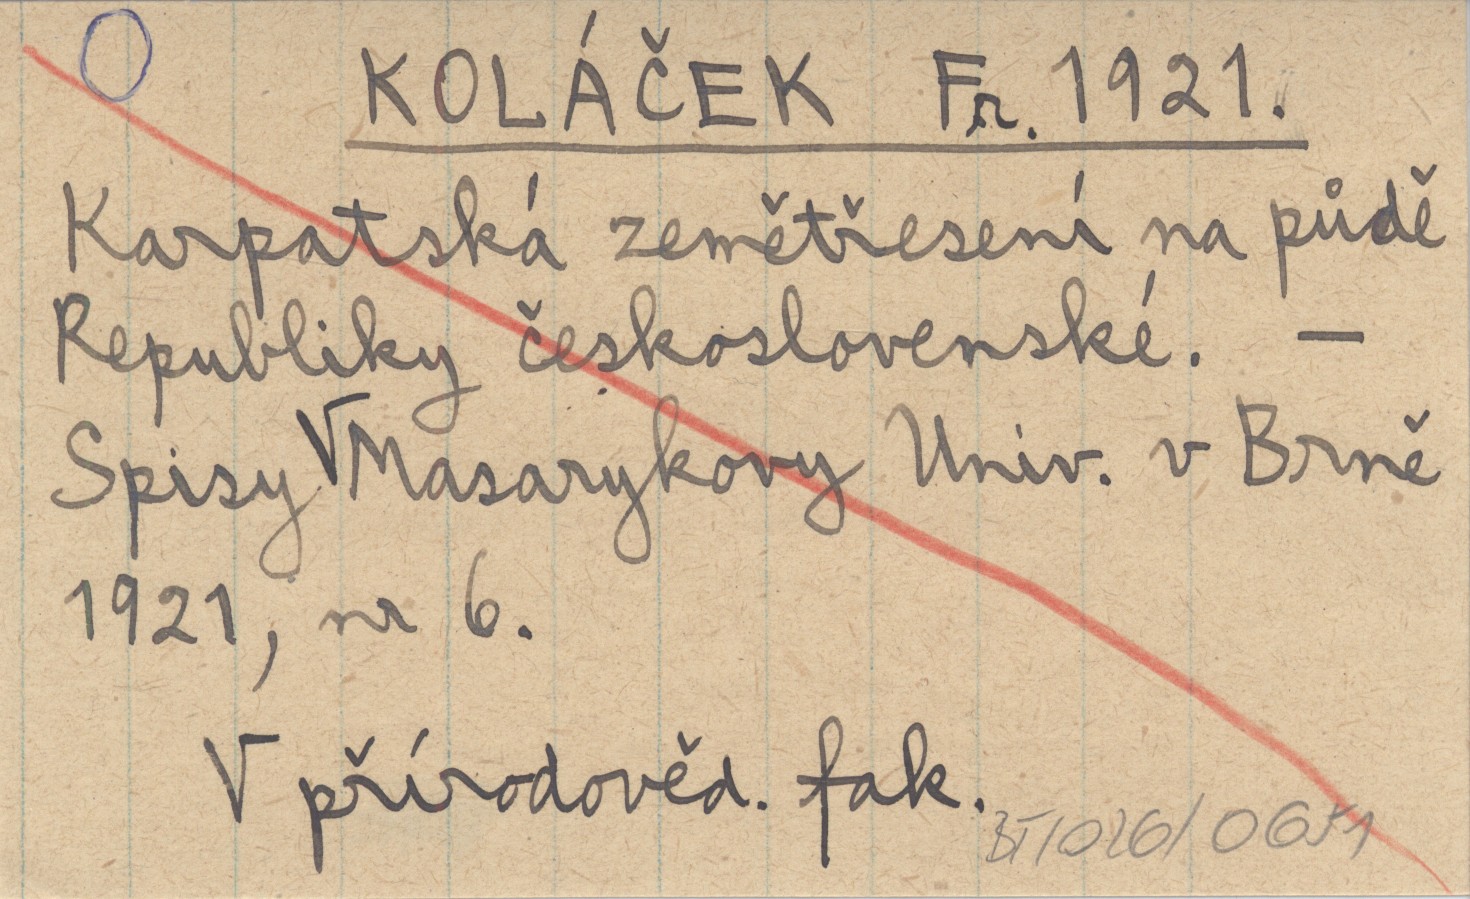 KOLÁČEK Fr. 1921.
Karpatská zemětřesení na půdě
Republiky československé. —
Spisy √ Masarykovy Univ. v Brně
1921, nr 6.
√ přírodověd. fak.